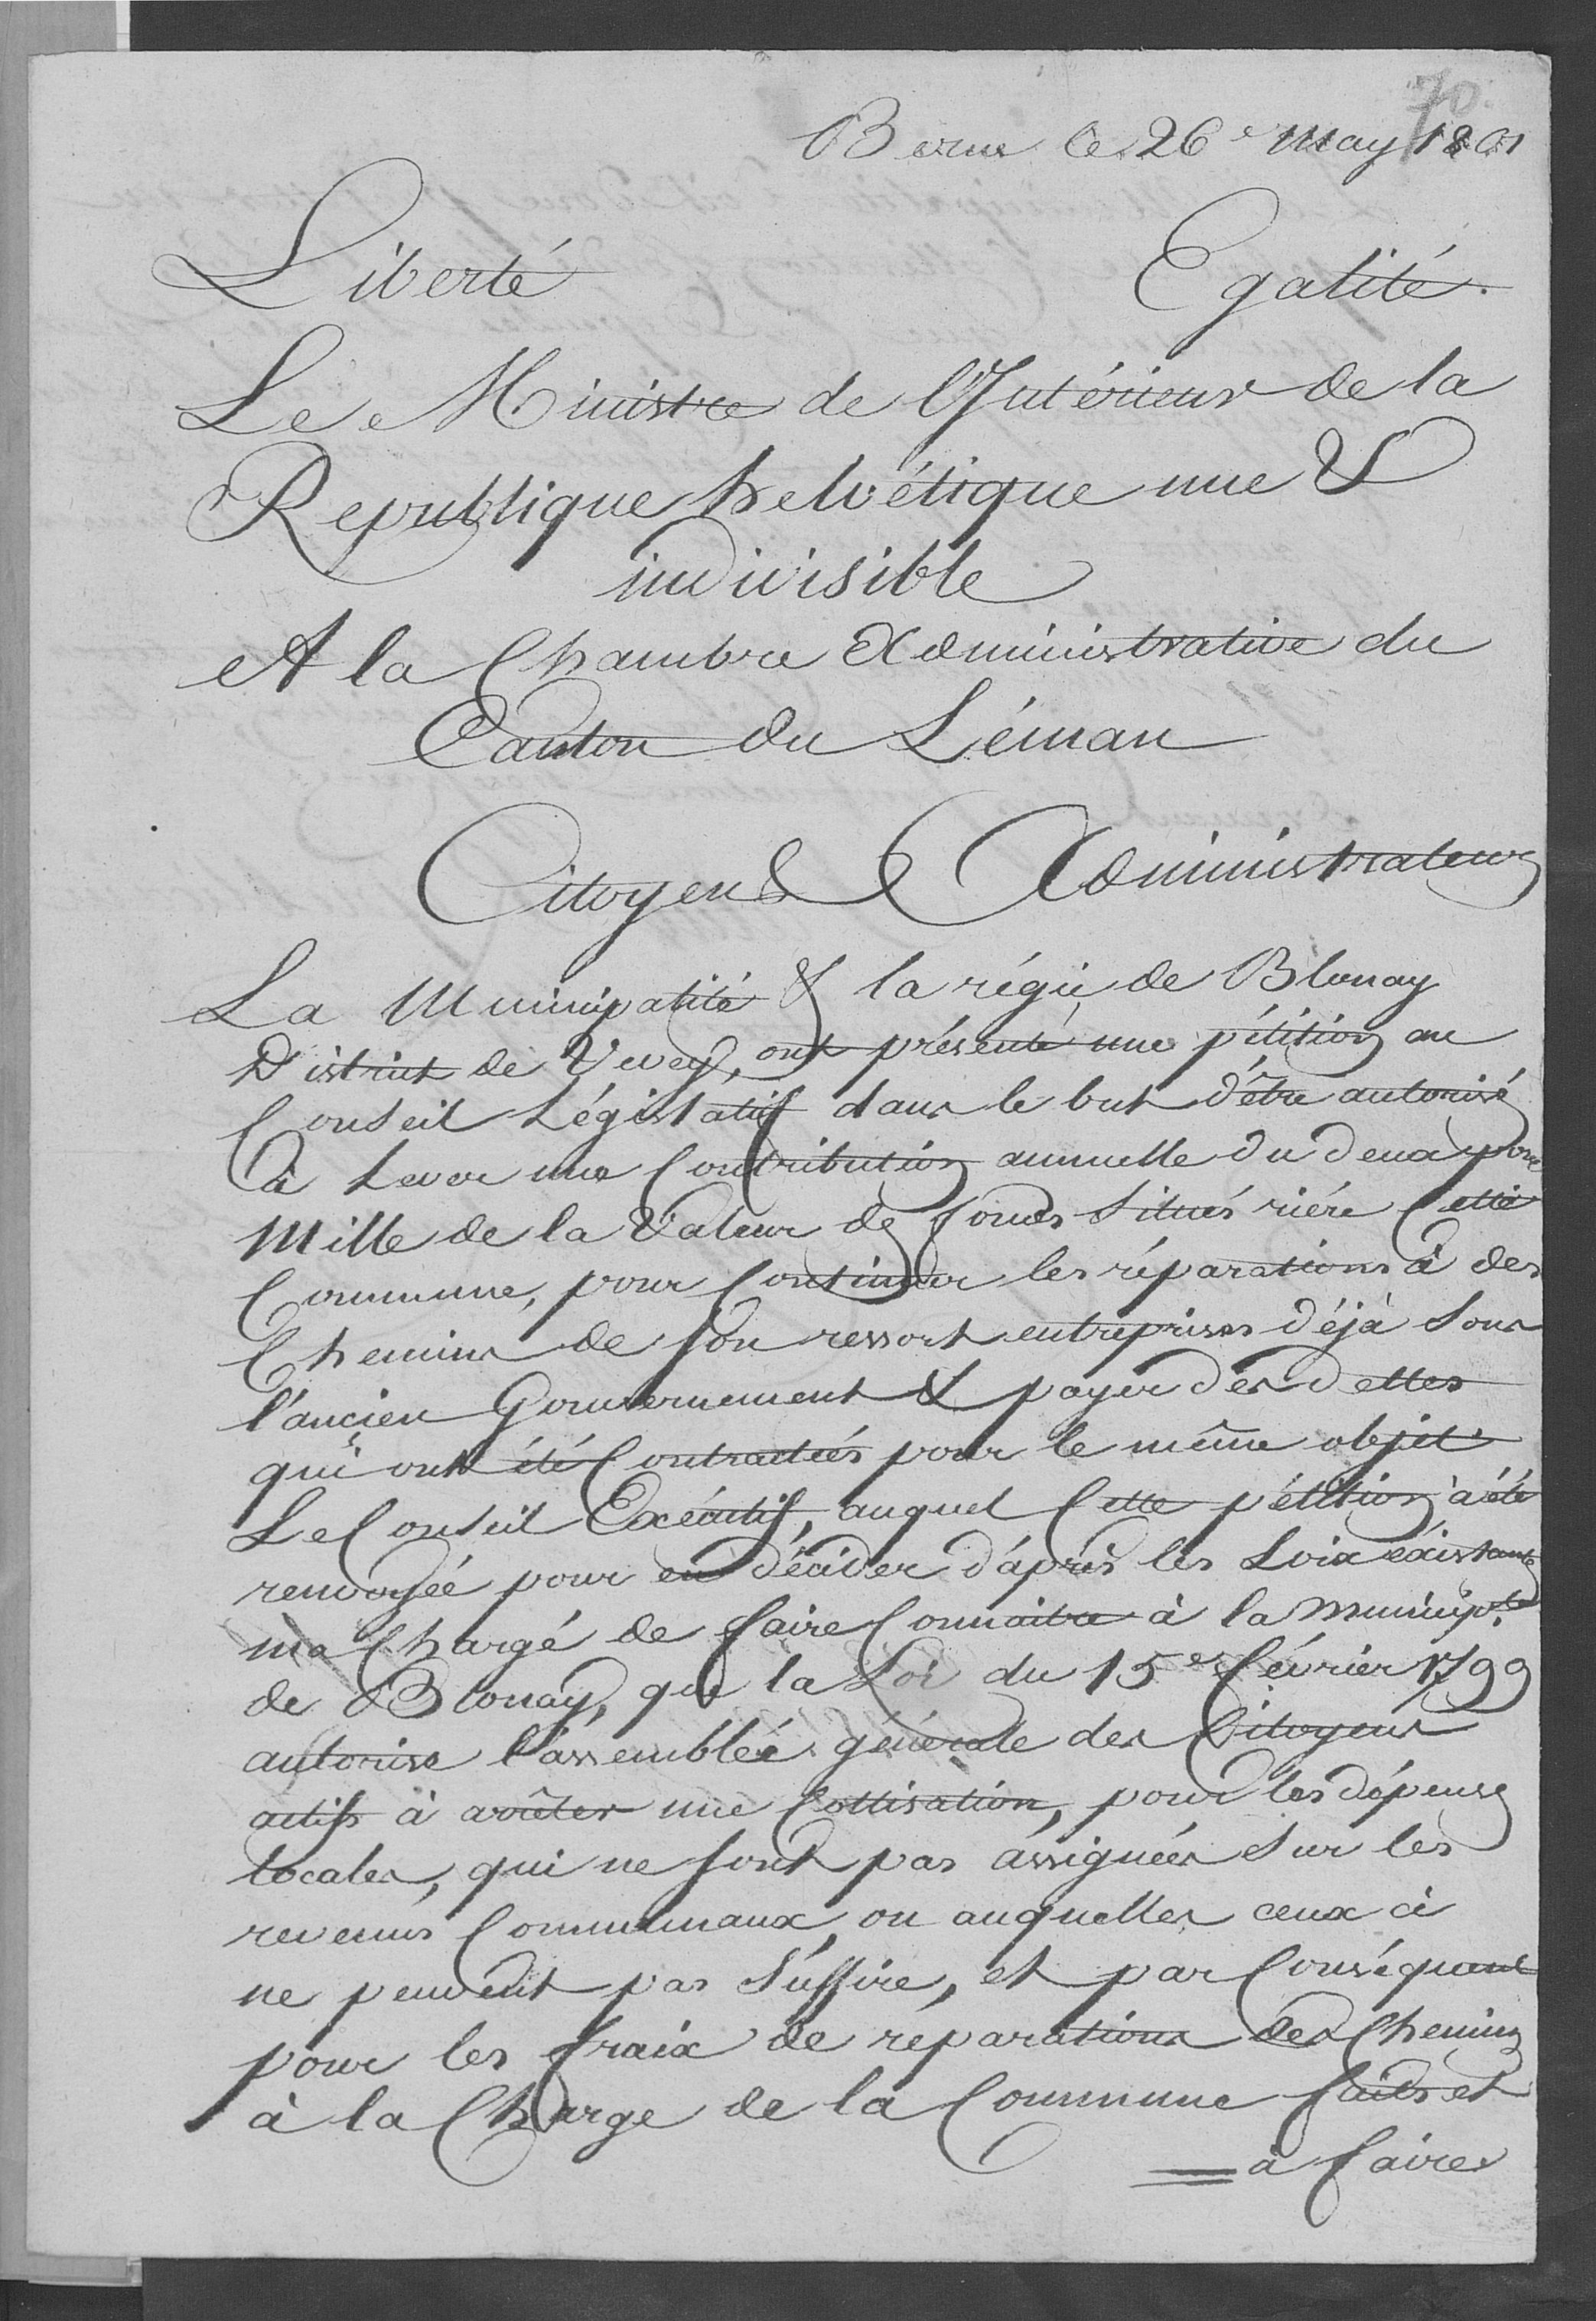 70.
Berne le 26e May 1801
Liberté Egalité.
Le Ministre de l'Intérieur de la
Republique helvétique une &
indivisible
A la Chambre Administrative du
Canton du Léman
Citoyens Administrateurs
La Municipalité & la régie de Blonay
District de Vevey, ont présenté une pétition au
Conseil Législatif dans le but d'être autorisé
à Lever une Contribution annuelle du deux pour
Mille de la Valeur de fonds Situés riére Cette
Commune, pour Continuer les réparations à des
Chemins de son ressort entreprises déjà Sous
l'ancien Gouvernement & payer des dettes
qui ont été Contractées pour le même objet.
Le Conseil Exécutif, auquel Cette pétition à été
renvoyée pour en décider d'après les Loix existantes
m'a Chargé de faire Connaitre à la Municip.té
de Blonay, que la Loi du 15e février 1799
autorise l'assemblée générale des Citoyens
actifs à arrêter une Cottisation, pour les dépenses
locales, qui ne sont pas assignées Sur les
revenus Communaux, ou auquelles ceux ci
ne peuvent pas Suffire, et par Conséquent
pour les fraix de réparations des Chemins
à la Charge de la Commune faits et
à faire